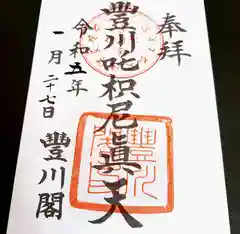 奉拝
豊川吒枳尼眞天
令和五年
一月二十七日
豊川閣